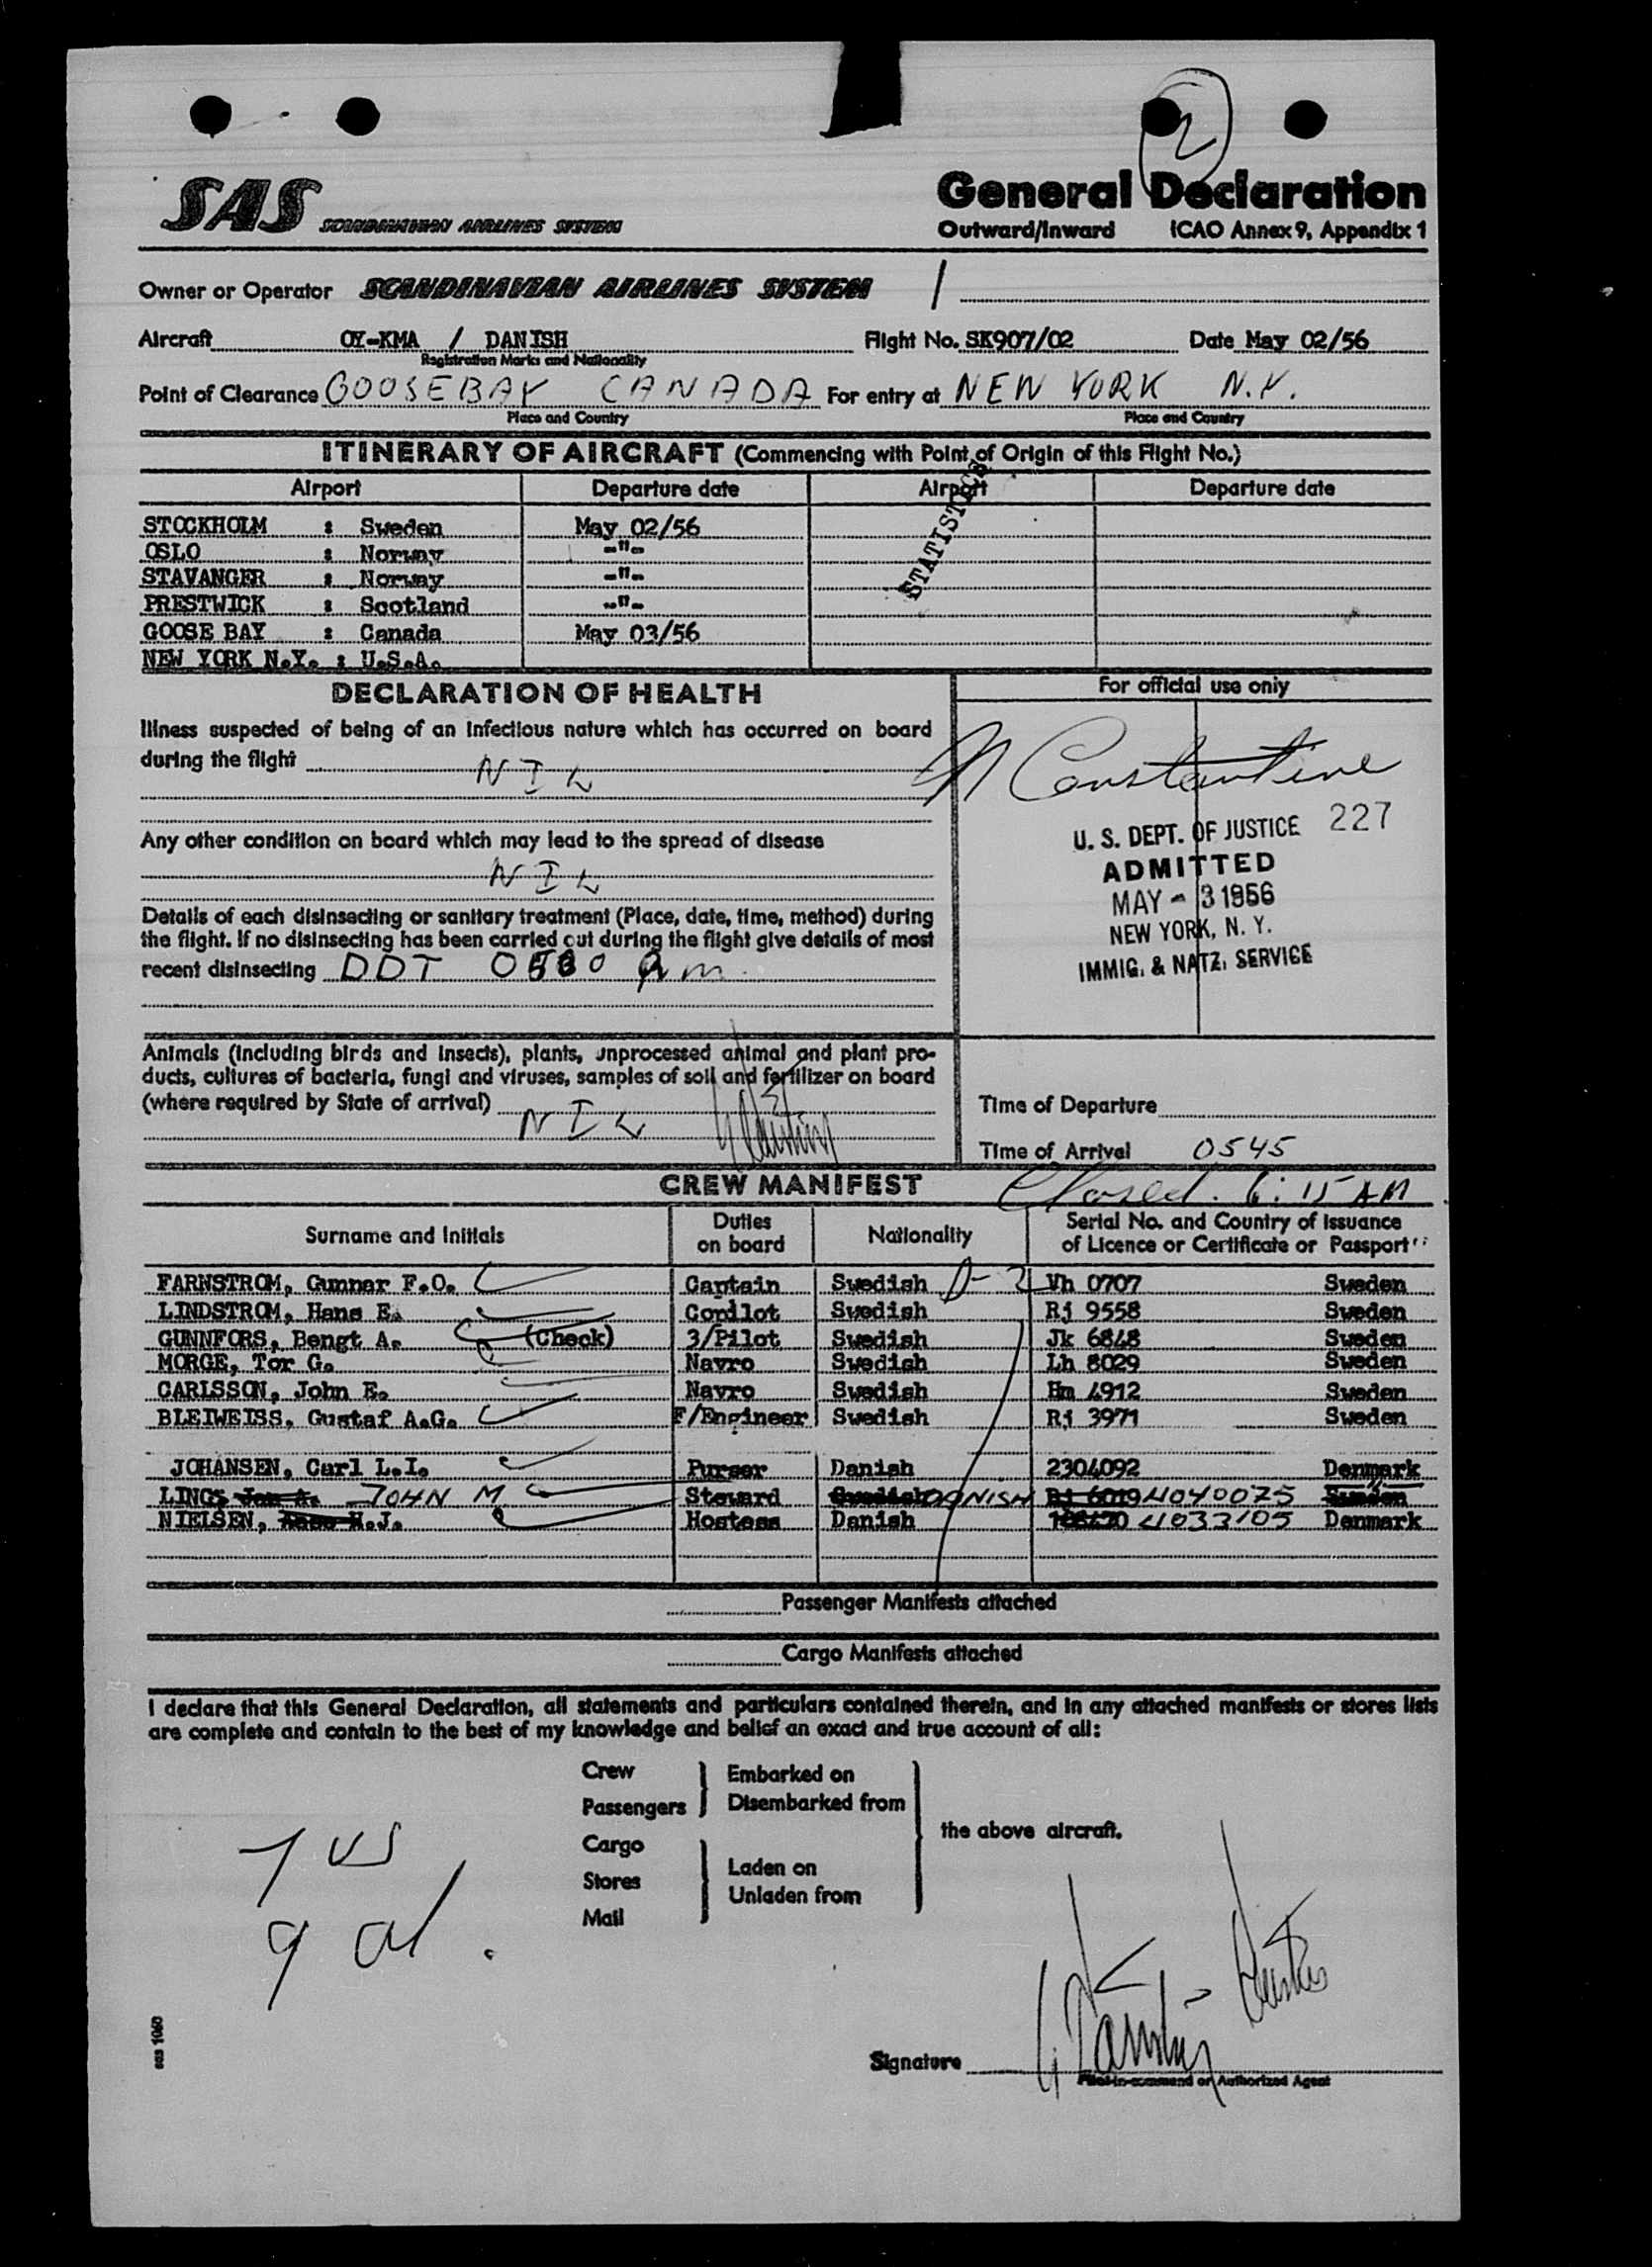 2
SAS SCANDINAVIAN AIRLINES SYSTEM
General Declaration
Outward/Inward ICAO Annex 9, Appendix 1
Owner or Operator SCANDINAVIAN AIRLINES SYSTEM /
Aircraft OY-KMA / DANISH Flight No. SK907/02 Date May 02/56
Registration Marks and Nationality
Point of Clearance GOOSEBAY CANADA For entry at NEW YORK N.Y.
Place and Country Place and Country
ITINERARY OF AIRCRAFT (Commencing with Point of Origin of this Flight No.)
Airport Departure date Airport Departure date
STATISTICS
STOCKHOLM : Sweden May 02/56
OSLO : Norway -"-
STAVANGER : Norway -"-
PRESTWICK : Scotland -"-
GOOSE BAY : Canada May 03/56
NEW YORK N.Y. : U.S.A.
DECLARATION OF HEALTH
Illness suspected of being of an infectious nature which has occurred on board
during the flight NIL
Any other condition on board which may lead to the spread of disease
NIL
Details of each disinsecting or sanitary treatment (Place, date, time, method) during
the flight. If no disinsecting has been carried out during the flight give details of most
recent disinsecting DDT am.
For official use only
N Constantine
U. S. DEPT. OF JUSTICE 227
ADMITTED
MAY - 3 1956
NEW YORK, N. Y.
IMMIG. & NATZ. SERVICE
Animals (including birds and insects), plants, unprocessed animal and plant pro-
ducts, cultures of bacteria, fungi and viruses, samples of soil and fertilizer on board
(where required by State of arrival) NIL
Time of Departure
Time of Arrival 0545
Closed. 6:15 AM
CREW MANIFEST
Surname and Initials Duties on board Nationality Serial No. and Country of Issuance of Licence or Certificate or Passport
FARNSTROM, Gunnar F.O. Captain Swedish D-2 Vh 0707 Sweden
LINDSTROM, Hans E. Copilot Swedish Rj 9558 Sweden
GUNNFORS, Bengt A. (Check) 3/Pilot Swedish Jk 6848 Sweden
MORGE, Tor G. Navro Swedish Lh 8029 Sweden
CARLSSON, John E. Navro Swedish Hm 4912 Sweden
BLEIWEISS, Gustaf A.G. F/Engineer Swedish Rj 3971 Sweden
JOHANSEN, Carl L.I. Purser Danish 2304092 Denmark
LINGS Jan A. JOHN M. Steward Swedish DANISH Rj 6019 4040075 Sweden "
NIELSEN, H.J. Hostess Danish 4033105 Denmark
Passenger Manifests attached
Cargo Manifests attached
I declare that this General Declaration, all statements and particulars contained therein, and in any attached manifests or stores lists
are complete and contain to the best of my knowledge and belief an exact and true account of all:
Crew
Passengers
Embarked on
Disembarked from
Cargo
Stores
Mail
Laden on
Unladen from
the above aircraft.
7 US
9 al.
Signature
Pilot-in-command or Authorized Agent
603 1060